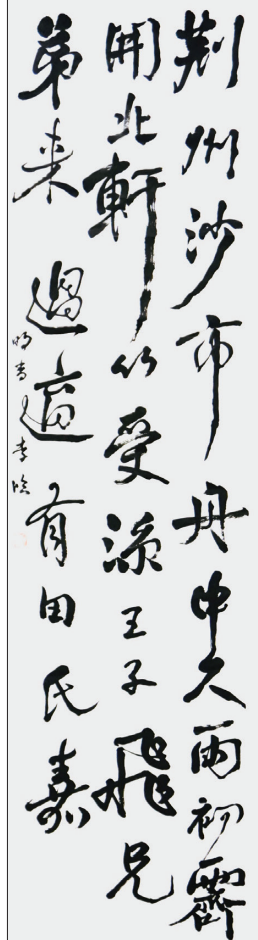 荆州沙市舟中久雨初霽
開北軒以受涼王子飛兄
弟来過適有田氏嘉